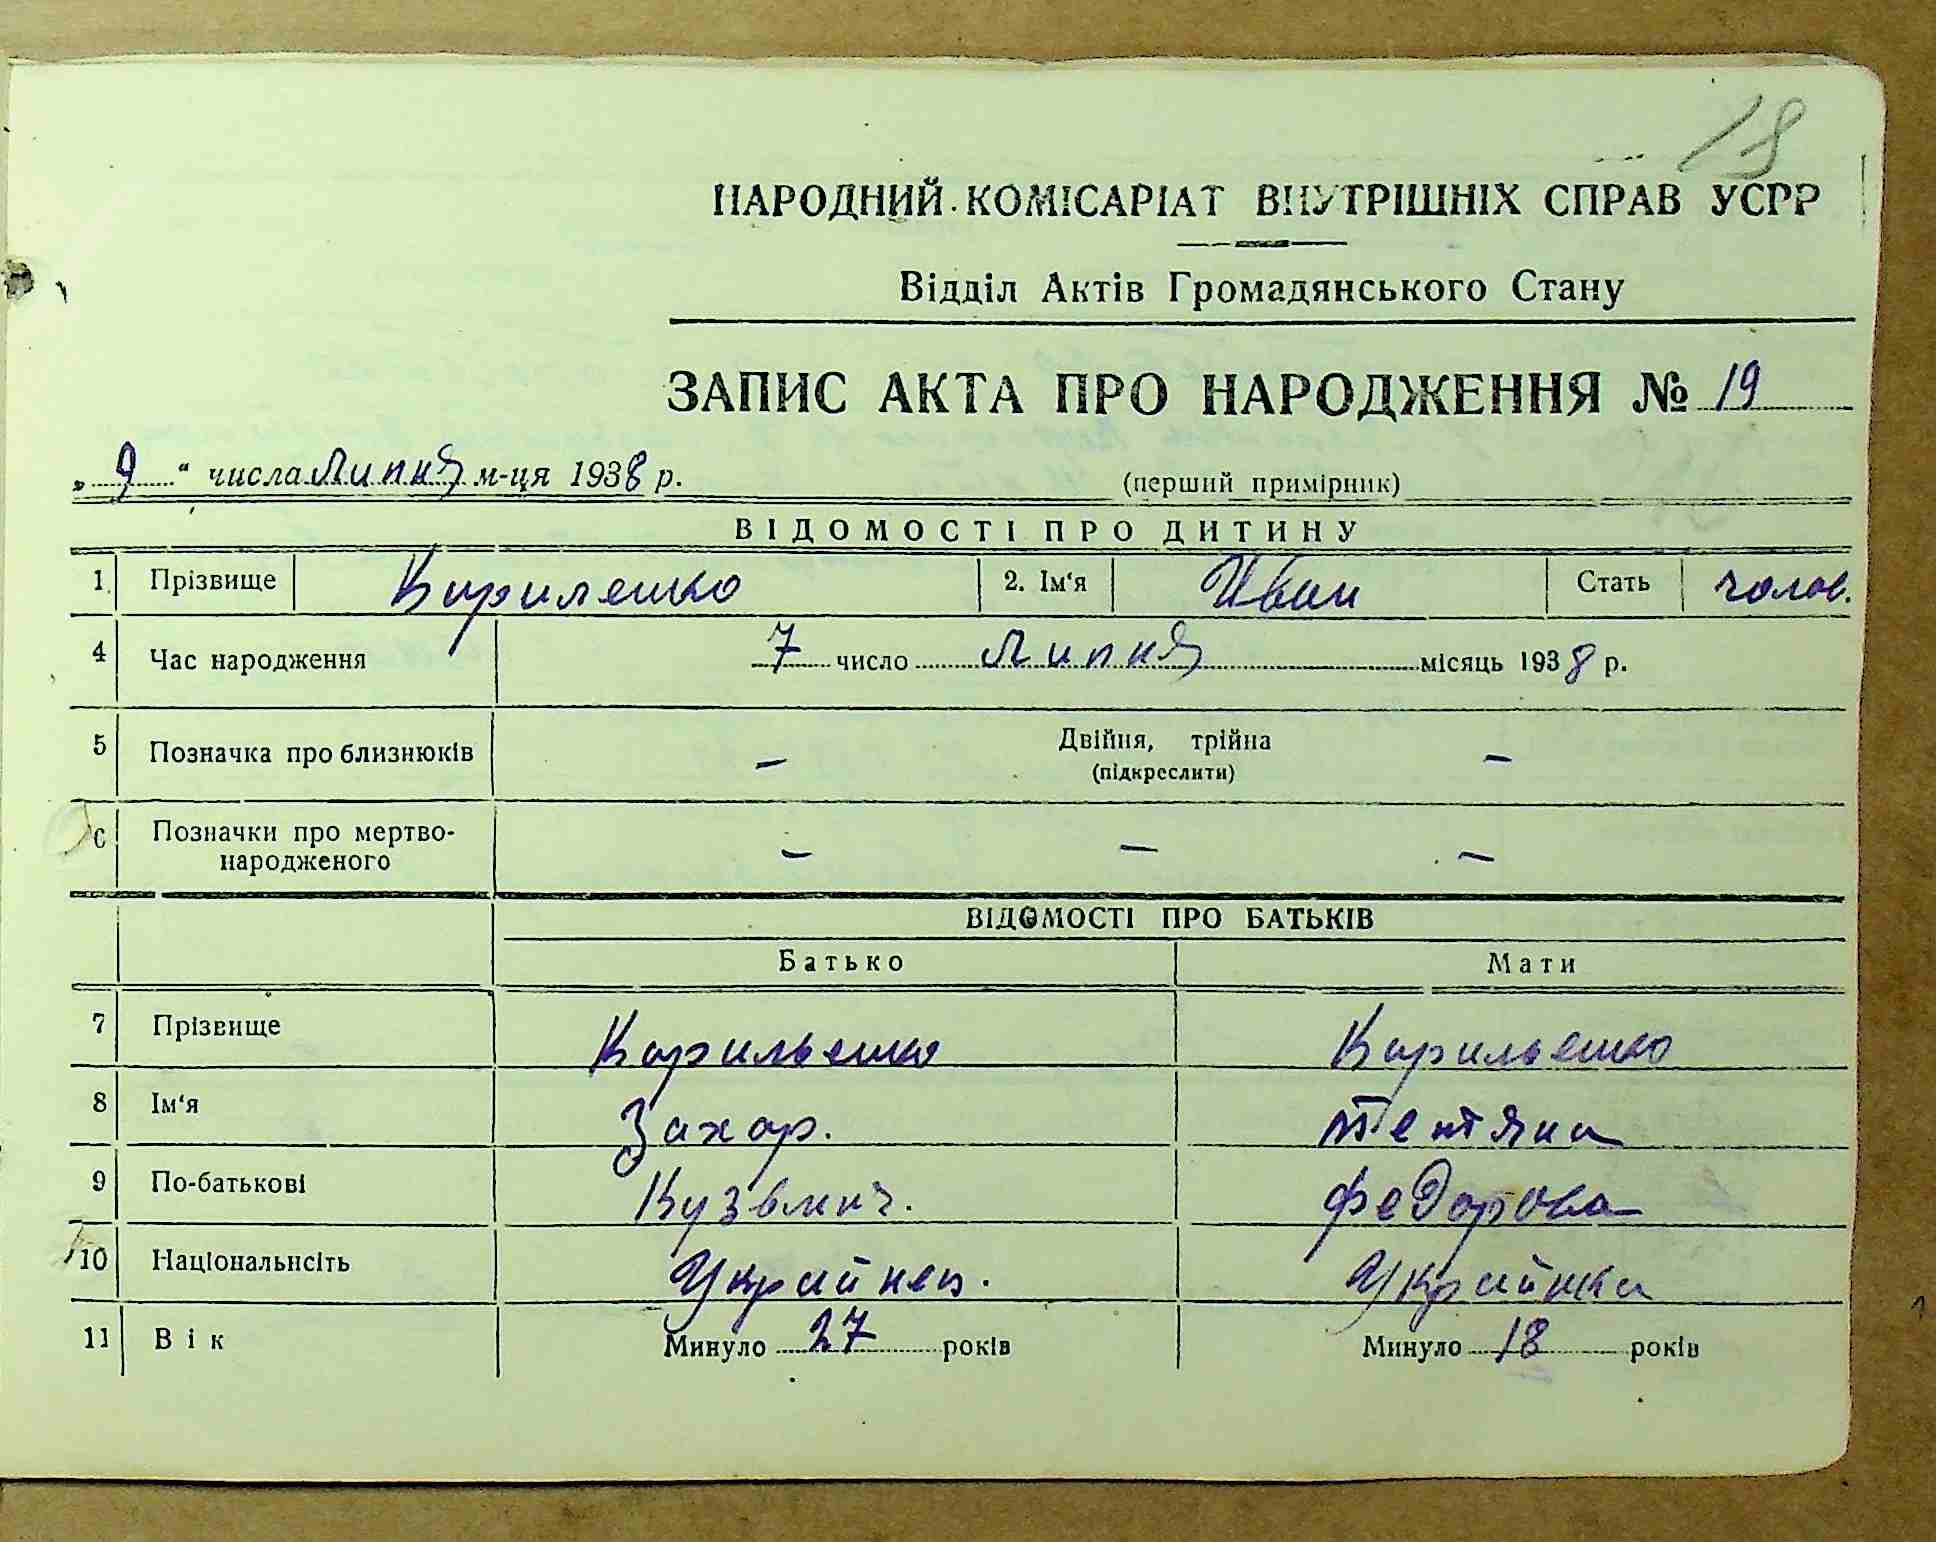 18
НАРОДНИЙ КОМІСАРІАТ ВНУТРІШНІХ СПРАВ УСРР
Відділ Актів Громадянського Стану
ЗАПИС АКТА ПРО НАРОДЖЕННЯ № 19
„ 9 “ числа Липня м-ця 1938 р. (перший примірник)
ВІДОМОСТІ ПРО ДИТИНУ
1 Прізвище Кириленко 2. Ім‘я Иван Стать чолов.
4 Час народження 7 число Липня місяць 1938 р.
5 Позначка про близнюків – Двійня, трійна –
(підкреслити)
6 Позначки про мертво-
народженого – – –
ВІДОМОСТІ ПРО БАТЬКІВ
Батько Мати
7 Прізвище Кирильенко Кирильенко
8 Ім‘я Захар. Тетяна
9 По-батькові Кузьмич. Федорова
10 Національнсіть Украйнец. Украйнка
11 Вік Минуло 27 років Минуло 18 років